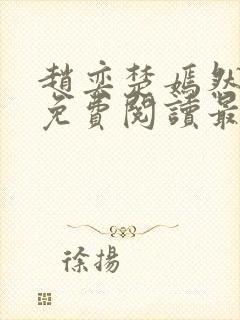 趙奕楚嫣然
免費閱讀最
徐揚